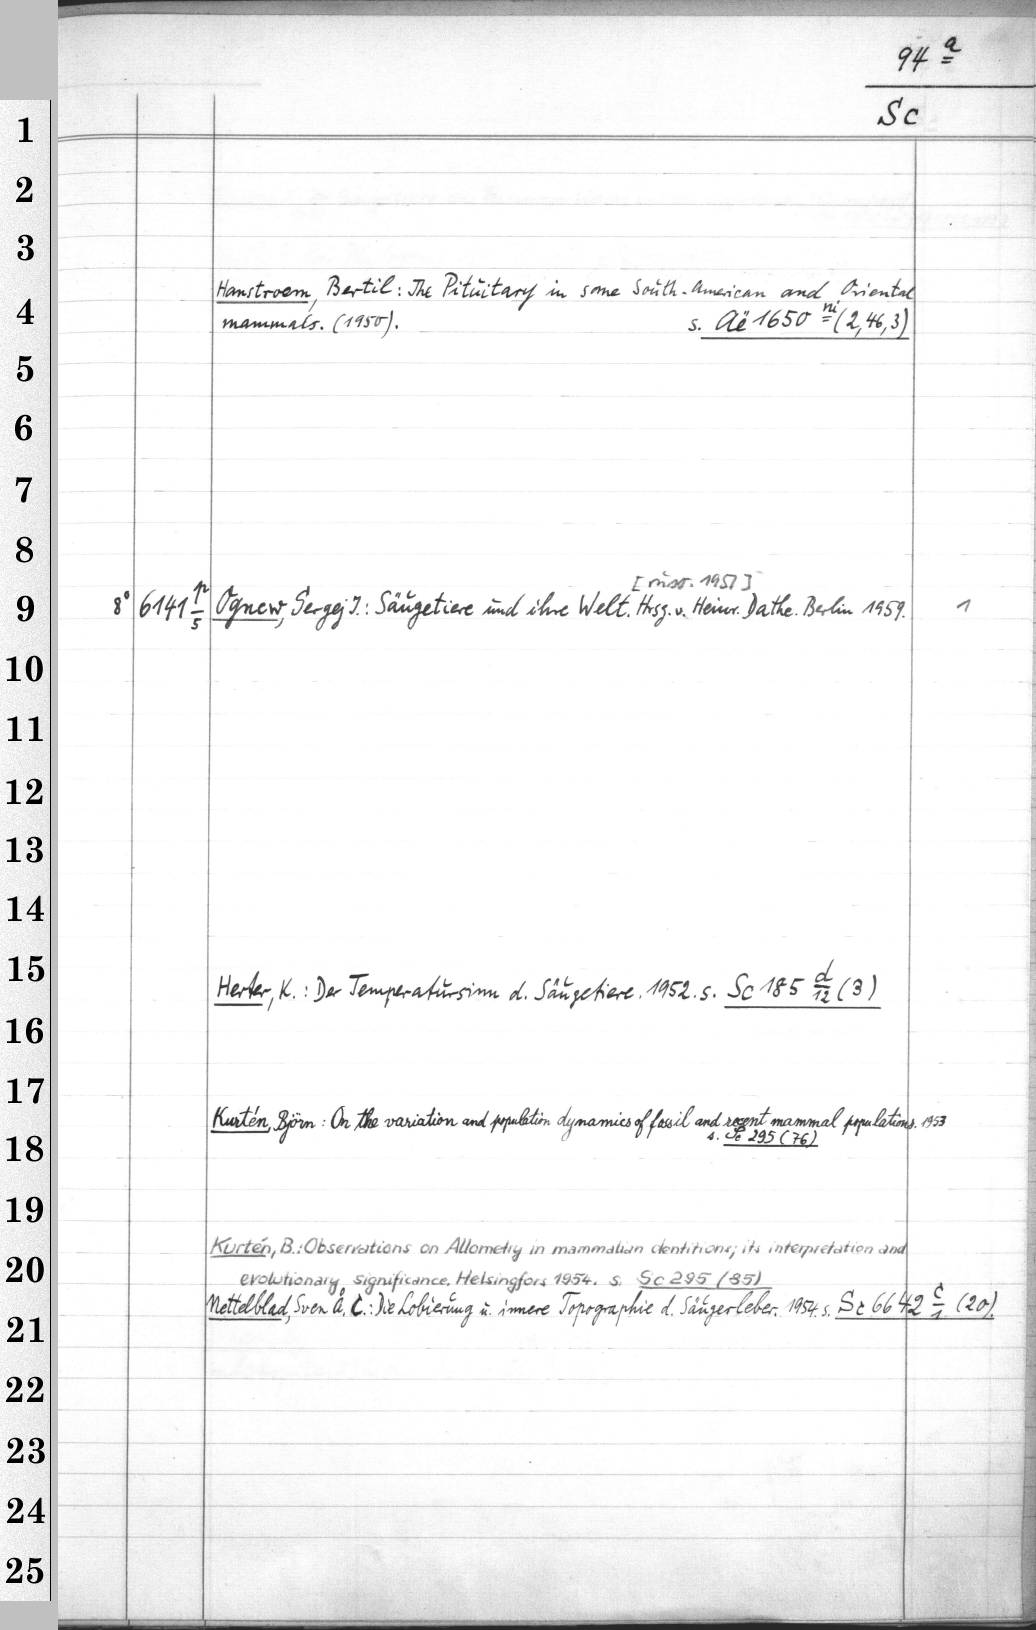 94 a
Sc
1
2
3
Hanstroem, Bertil: The Pituitary in some South-American and Oriental
4
mammals. (1950). s. Aë 1650 ni (2,46,3)
5
6
7
8
[russ. 1951]
9 8° 6141 p/5 Ognew, Sergej I.: Säugetiere und ihre Welt. Hrsg. v. Heinr. Dathe. Berlin 1959. 1
10
11
12
13
14
15 Herter, K.: Der Temperatursinn d. Säugetiere. 1952. s. Sc 185 d/12 (3)
16
17 Kurtén, Björn: On the variation and population dynamics of fossil and recent mammal populations. 1953
18 s. Sc 295 (76)
19
Kurtén, B.: Observations on Allometry in mammalian dentitions; its interpretation and
20 evolutionary significance. Helsingfors 1954. s. Sc 295 (85)
Nettelblad, Sven Å. C.: Die Lobierung u. innere Topographie d. Säugerleber. 1954. s. Sc 6642 c/1 (20).
21
22
23
24
25